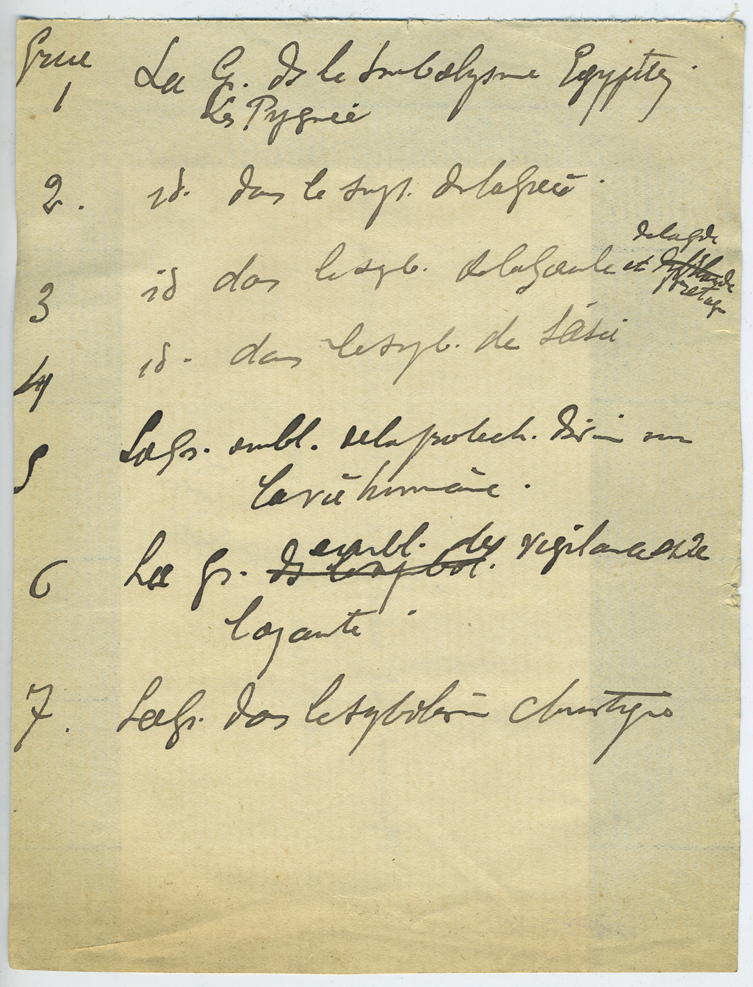 Grue
1 La G. ds le Symbolysme Egyptien.
Les Pygmées
2. id. dans le symb. de la Grèce.
3 id dans le symb. de la Gaule et de la Gde Bretagne
4 id. dans le symb. de l'Asie
5 La Gr. embl. de la protect. divine sur
la vie humaine.
6 La Gr. embl. des vigilance et de
loyauté
7. La Gr. dans le symbolisme chrétien